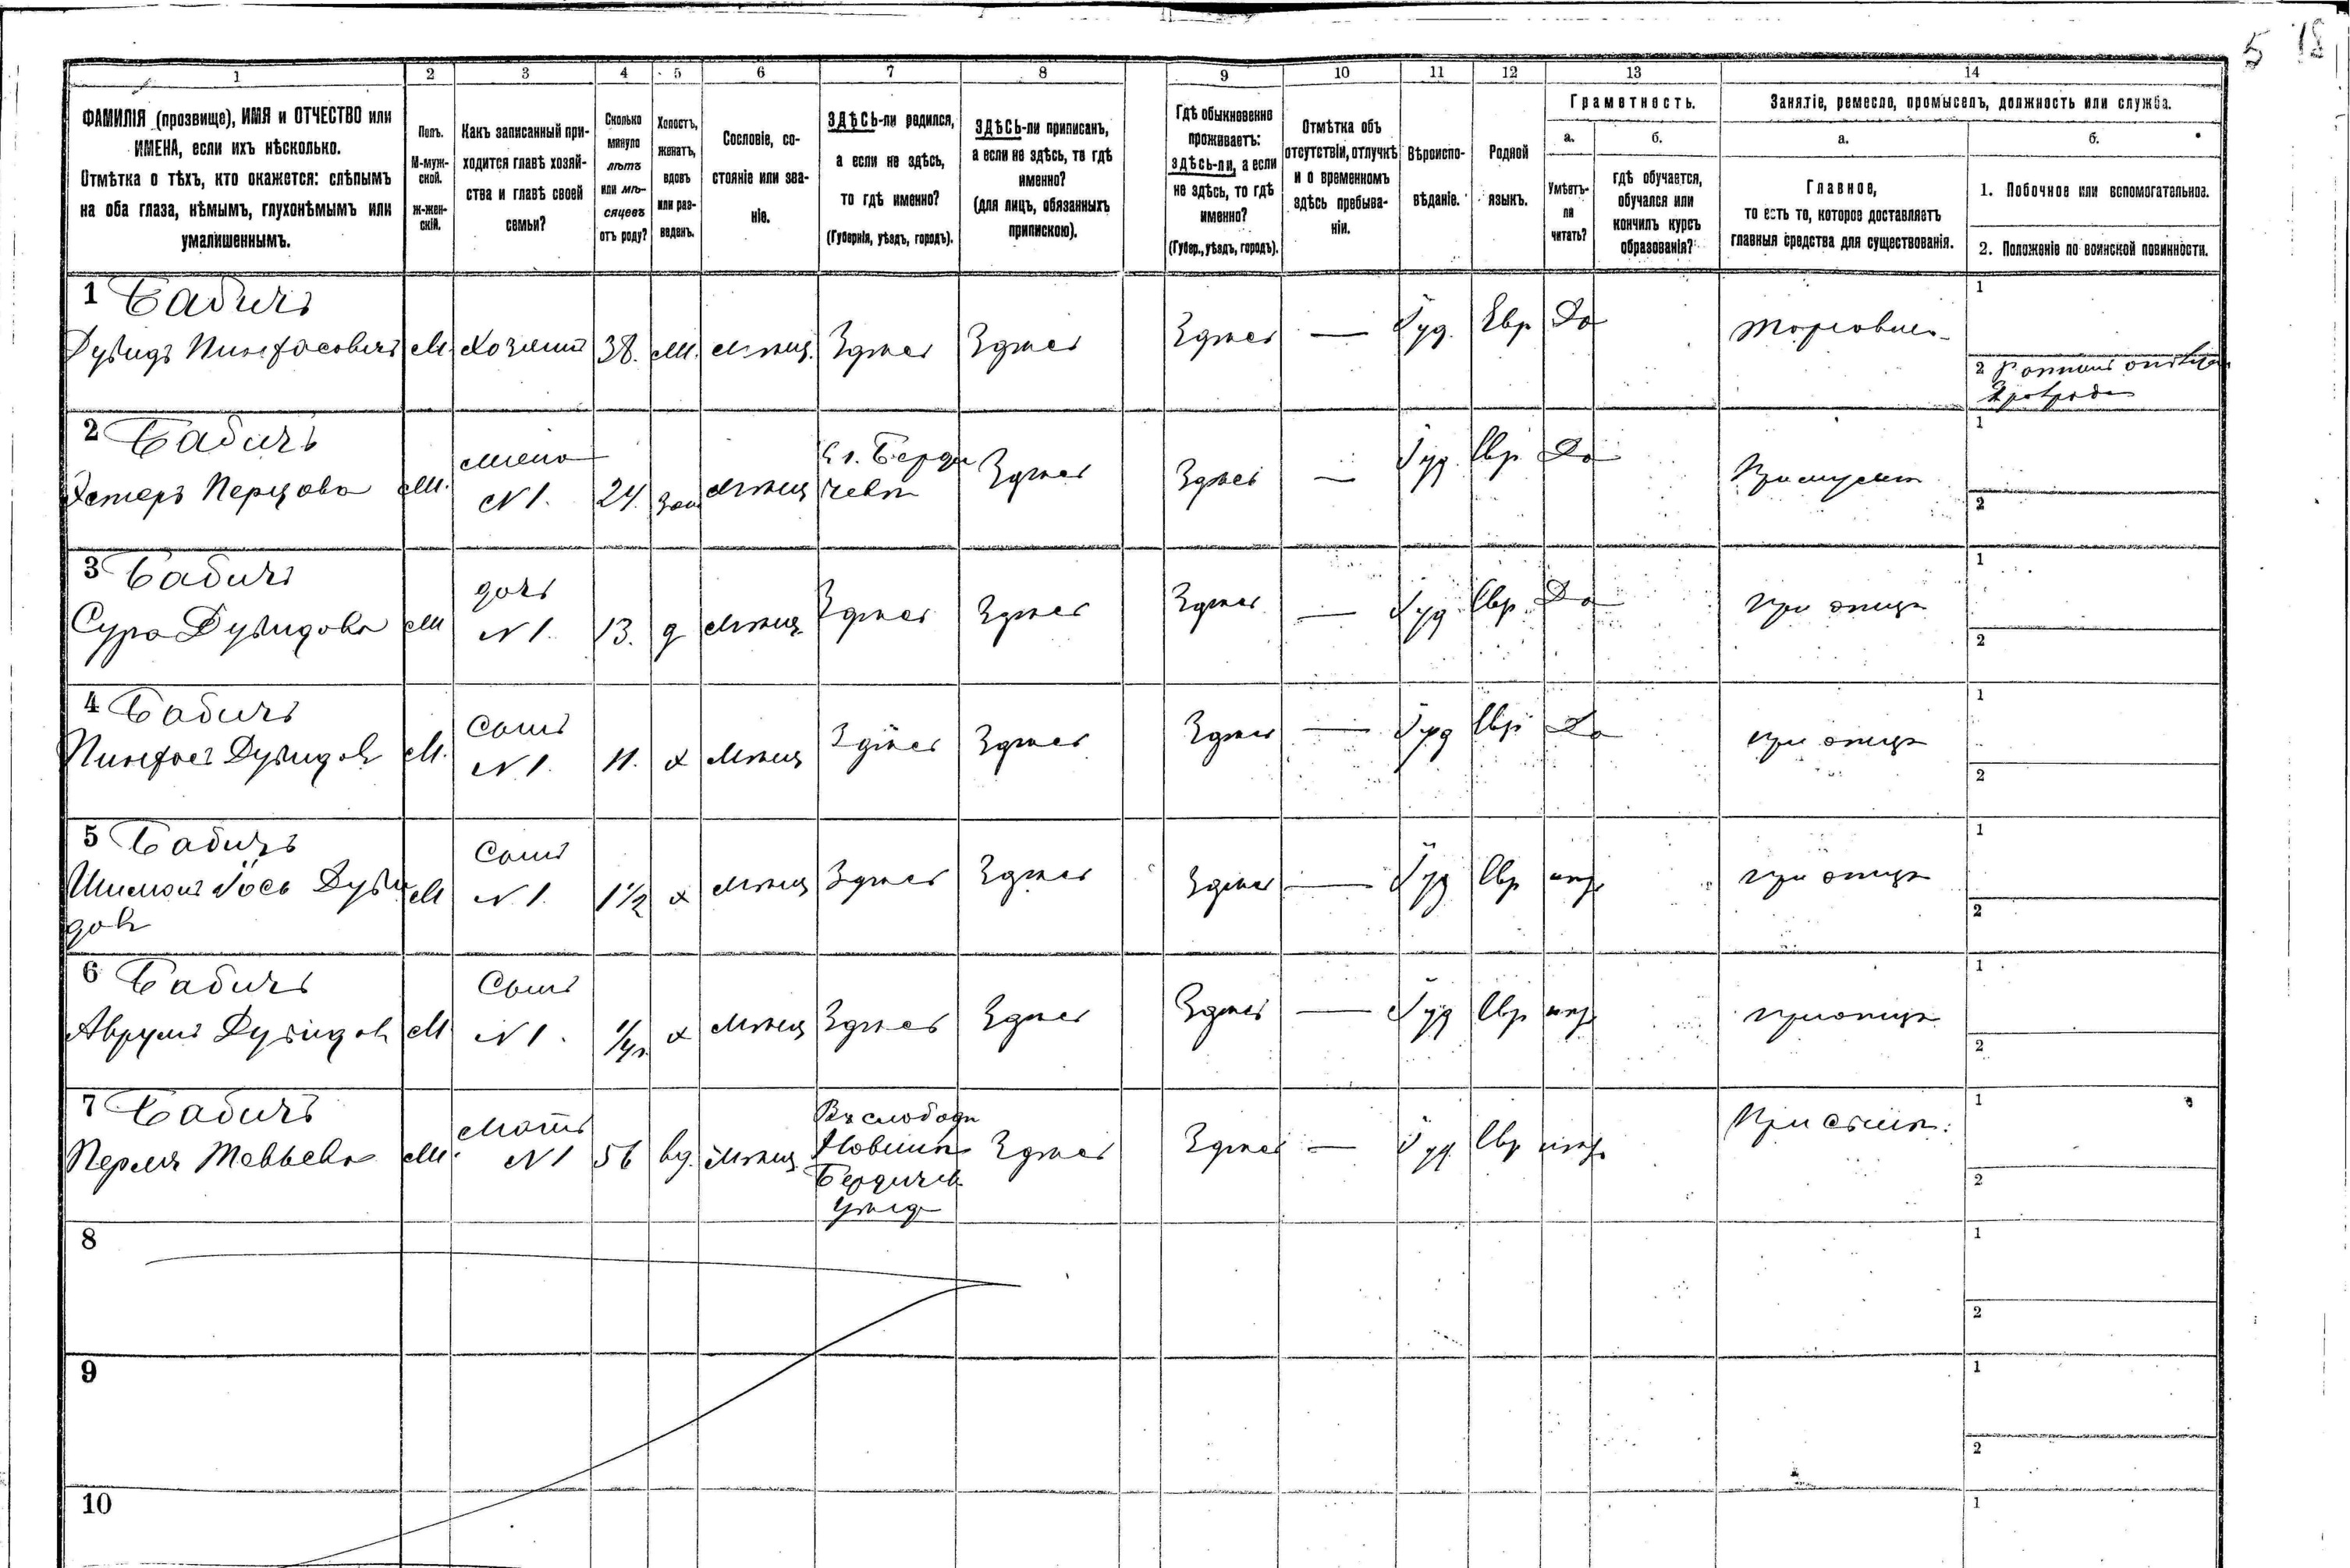 5 18
1 2 3 4 5 6 7 8 9 10 11 12 13 14
ФАМИЛІЯ (прозвище), ИМЯ и ОТЧЕСТВО или
ИМЕНА, если ихъ нѣсколько.
Отмѣтка о тѣхъ, кто окажется: слѣпымъ
на оба глаза, нѣмымъ, глухонѣмымъ или
умалишеннымъ.
Полъ.
М-муж-
ской.
Ж-жен-
скій.
Какъ записанный при-
ходится главѣ хозяй-
ства и главѣ своей
семьи?
Сколько
минуло
лѣтъ
или мѣ-
сяцевъ
отъ роду?
Холостъ,
женатъ,
вдовъ
или раз-
веденъ.
Сословіе, со-
стояніе или зва-
ніе.
ЗДѢСЬ-ли родился,
а если не здѣсь,
то гдѣ именно?
(Губернія, уѣздъ, городъ).
ЗДѢСЬ-ли приписанъ,
а если не здѣсь, то гдѣ
именно?
(для лицъ, обязанныхъ
припискою).
Гдѣ обыкновенно
проживаетъ:
здѣсь-ли, а если
не здѣсь, то гдѣ
именно?
(Губер., уѣздъ, городъ).
Отмѣтка объ
отсутствіи, отлучкѣ
и о временномъ
здѣсь пребыва-
ніи.
Вѣроиспо-
вѣданіе.
Родной
языкъ.
Грамотность.
а.
Умѣетъ-
ли
читать?
б.
гдѣ обучается,
обучался или
кончилъ курсъ
образованія?
Занятіе, ремесло, промыселъ, должность или служба.
а.
Главное,
то есть то, которое доставляетъ
главныя средства для существованія.
б.
1. Побочное или вспомогательное.
2. Положеніе по воинской повинности.
1 Бабичъ
Дувидъ Пинхасовичъ М. Хозяинъ 38. М. Мѣщ. Здѣсь Здѣсь Здѣсь — Іуд. Евр Да Торговля
1
2
2 Бабичъ
Эстеръ Перцова М. жена N 1. 24. Зам Мѣщ
Бердичевѣ Здѣсь Здѣсь — Іуд. Евр Да При мужѣ
1
2
3 Бабичъ
Сура Дувидова М дочь N 1. 13. д Мѣщ. Здѣсь Здѣсь Здѣсь — Іуд. Евр. Да при отцѣ
1
2
4 Бабичъ
Пинхасъ Дувидов М. Сынъ N 1. 11. х Мѣщ Здѣсь Здѣсь Здѣсь — Іуд Евр Да при отцѣ
1
2
5 Бабичъ
Шимонъ Іось Дуви
дов М Сынъ N 1. 1 1/2 х Мѣщ Здѣсь Здѣсь Здѣсь — Іуд Евр при отцѣ
1
2
6 Бабичъ
Аврумъ Дувидов М Сынъ N 1. х Мѣщ Здѣсь Здѣсь Здѣсь — Іуд Евр при отцѣ
1
2
7 Бабичъ
Перля Тевьева М. Мать N 1 56 вд. Мѣщ.
Въ слободѣ
Бердичев
уѣзд Здѣсь Здѣсь — Іуд Евр При сынѣ.
1
2
8
1
2
9
1
2
10
1